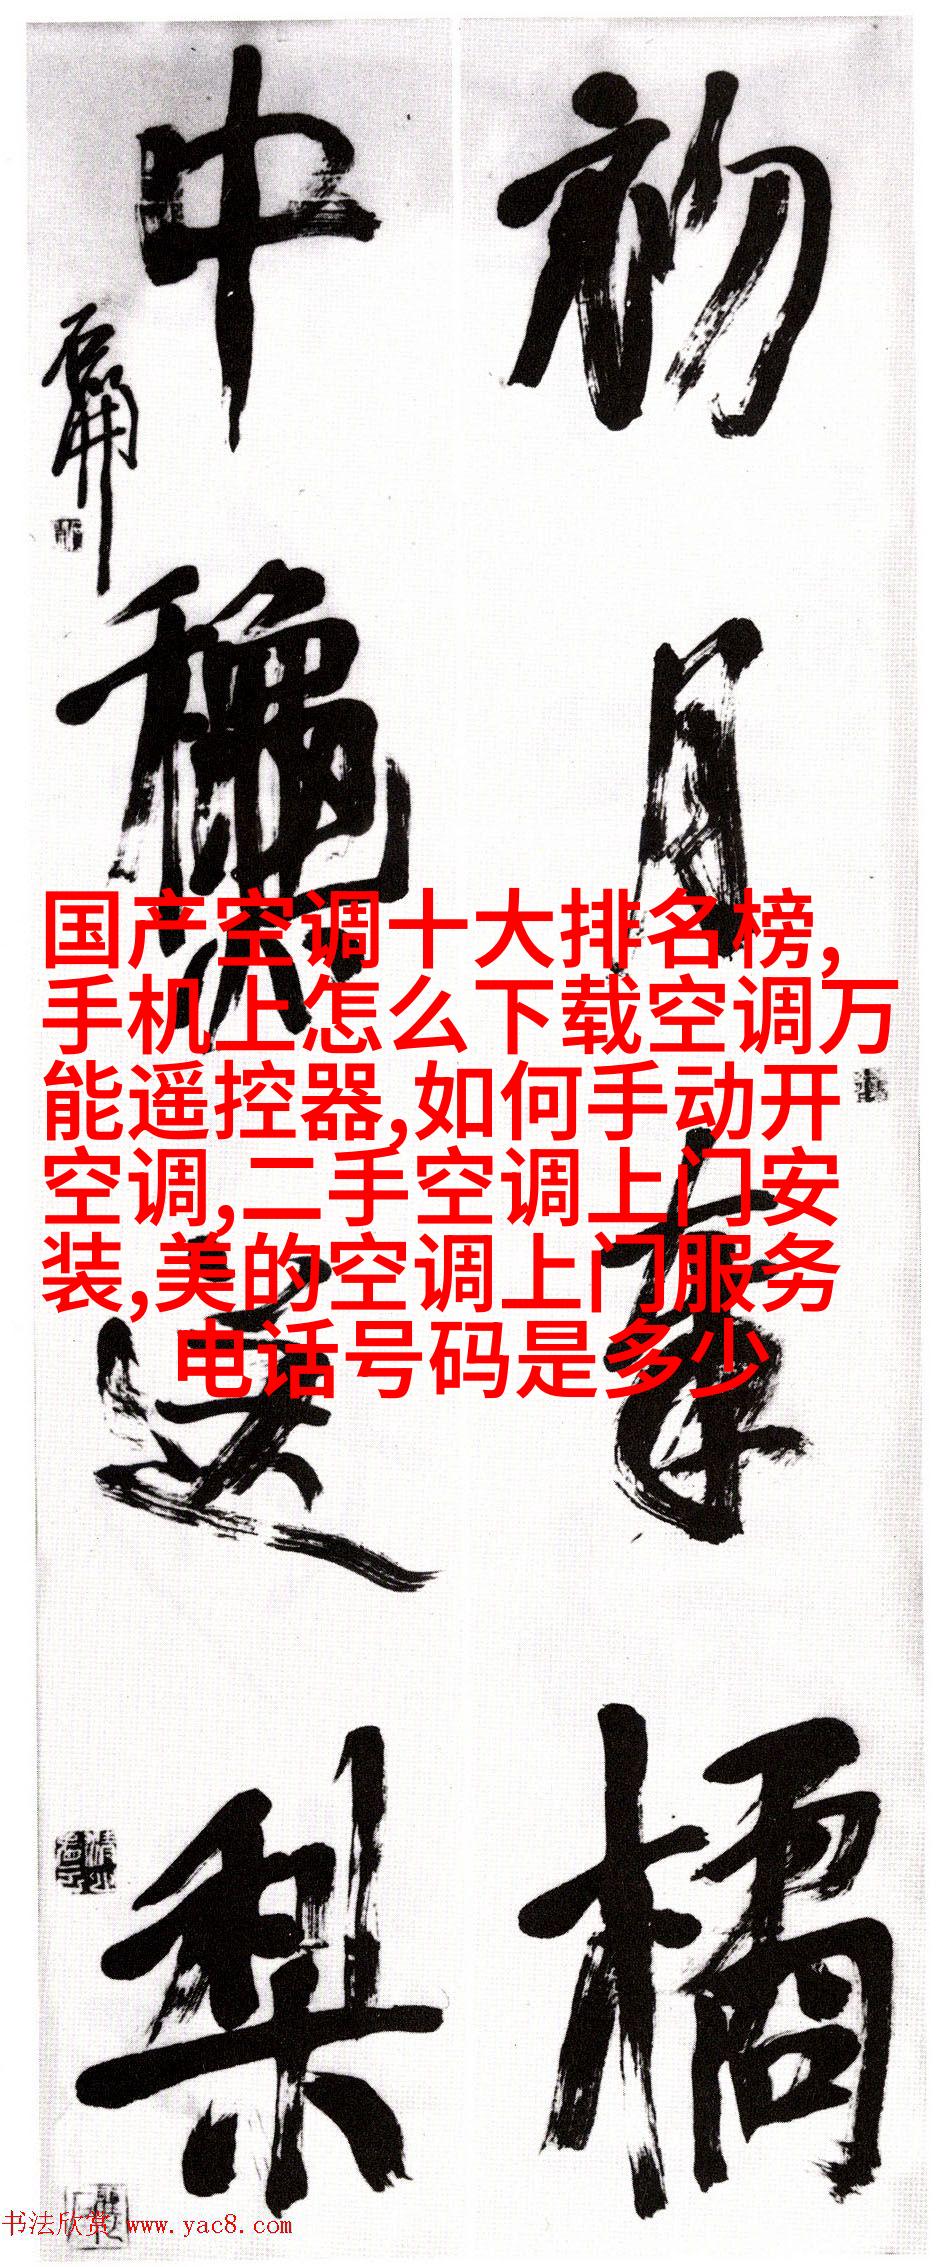 初月有橘
中穐送梨
石開
国产空调十大排名榜,
手机上怎么下载空调万
能遥控器,如何手动开
空调,二手空调上门安
装,美的空调上门服务
电话号码是多少
书法欣赏 www.yac8.com